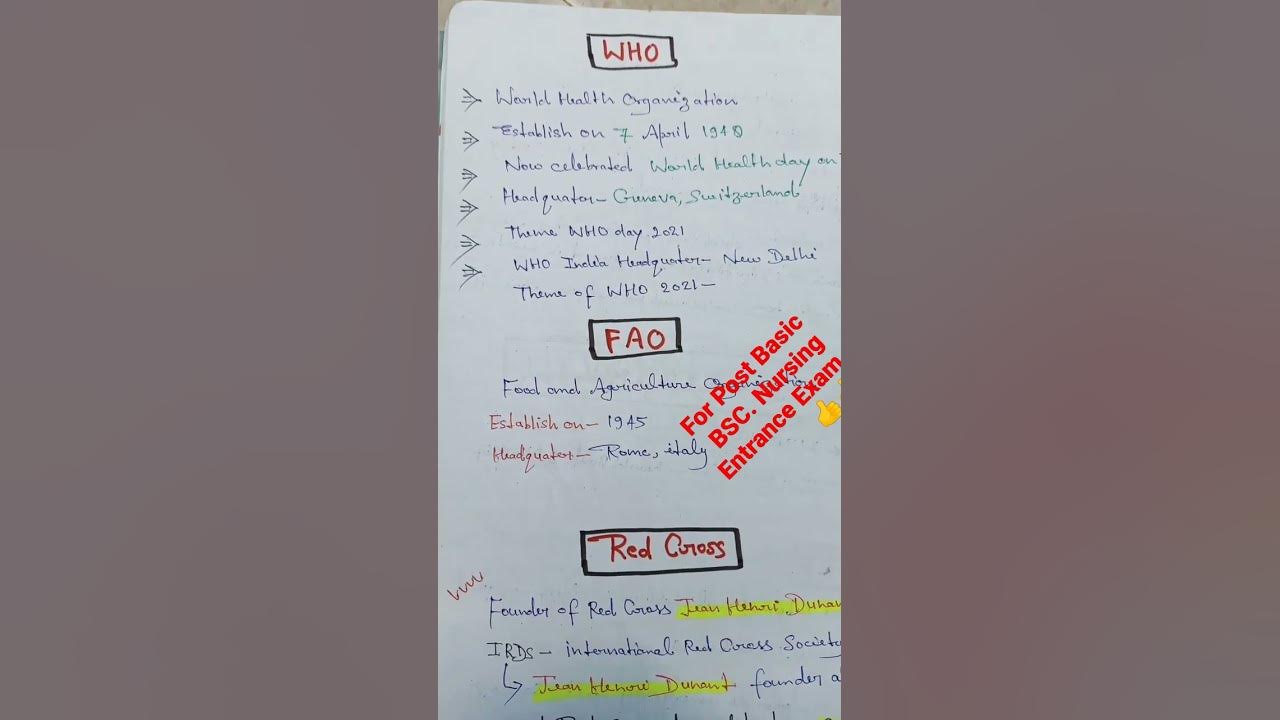 WHO
World Health Organization
Establish on 7 April 1948
Now celebrated World Health day on
Headquator- Geneva, Switzerland
Theme WHO day 2021
WHO India Headquater- New Delhi
Theme of WHO 2021-
FAO
Food and Agriculture Organization
Establish on- 1945
Headquater- Rome, italy
For Post Basic
BSC. Nursing
Entrance Exam
Red Cross
Founder of Red Cross Jean Henri Dunan
IRDS- international Red Cross Society
Jean Henori Dunant founder a